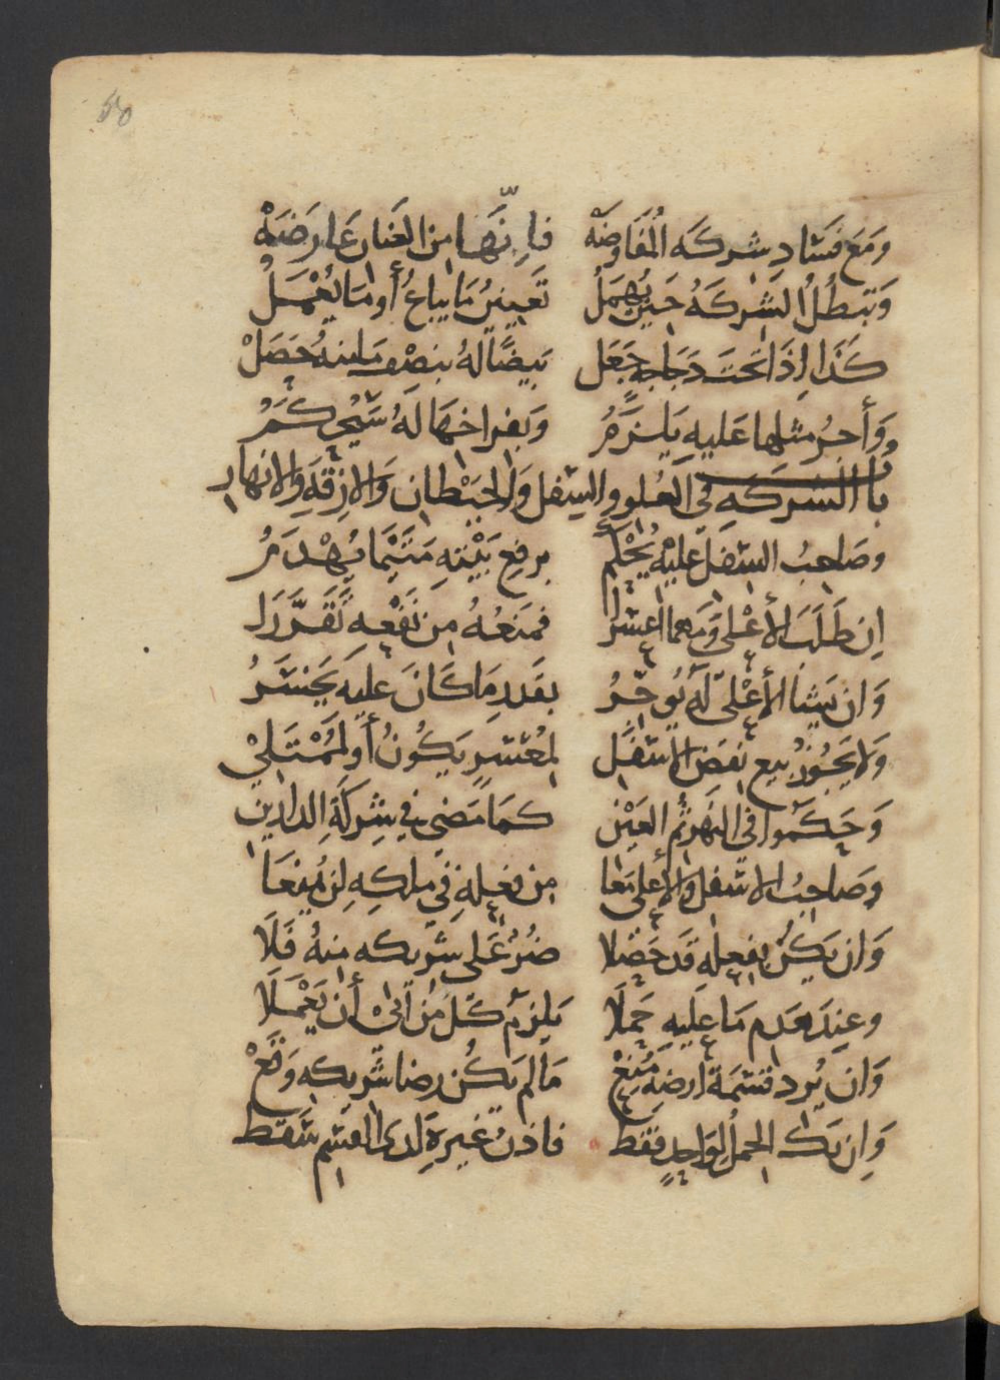 وَمَعَ فَسَادِ شِركَه المُفَاوضَهْ فَإِنّهَا مِن العَنان عَارضَهْ
وَتَبطُلُ الشِركَهُ حَينَ يُهمَلُ تَعيينُ مَا يباعُ أو مَا يُعْمَلُ
كَذَا إِذَا تحتَ دَجَاجهٍ جَعَل بَيضًا لهُ بنِصْف مَا منهُ حَصَلْ
وَأَجرُ مثلها عَليهِ يَلزَمُ وَبفراخهَا لَهُ سَيُحكَمُ
بابُ الشركَهِ في العُلو والسفل وَالحِيْطان وَالازِقَّهِ وَالانهار
وصَاحبُ السفل عَليْهِ يُحْكَمُ برفعِ بَيْتهِ مَتَى مَا يُهْدَمُ
إن طَلَبَ الأعْلى وَمَهما اعسَرا فمَنعُهُ مِن نَفْعِه تَقَرَّرَا
وَان يَشا الأعْلى لَه يُوجّرُ بقَدرِ مَا كَانَ عليَهِ يَخسَرُ
وَلا يَجُوزُ بيع نقض الاسفَل لمُعْسَرٍ يَكُونُ أو لمُمْتَلِيْ
وَحَكَموا في النَهر ثُم العَيْنِ كمَا مَضى في شِركَةِ الدارَين
وصَاحبُ الاسفل والأعلى مَعا مِن فعلهِ في ملكِهِ لن يُمنعَا
وَان يَكُن بِفعلهِ قَد حَصَلا ضُرٌ عَلى شرِيكه منهُ فَلَا
وعِندَ عَدمِ مَا عليهِ حَمَلَا يَلزمُ كُلَ مَن أبىْ أن يَعْمَلَا
وَان يُرد قسْمَة ارضهِ مُنِعْ مَا لم يَكُن رضا شريكه وَقَعْ
وَان يَك الحملُ لوَاحدٍ فَقَط فاذنُ غيرهِ لدى القسْم سَقَط